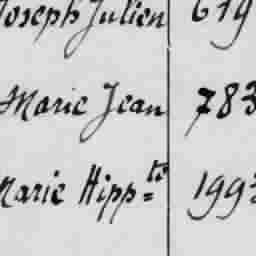 Joseph Julien 619
Marie Jean 783
Marie Hipp^te 199